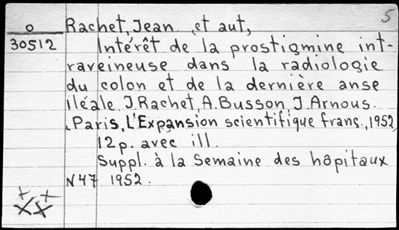 5
O Rachet, Jean et aut,
30512 Intérêt de la prostigmine int-
raveineuse dans la radiologie
du colon et de la dernière anse
iléale J.Rachet, A.Busson, J.Arnous.
Paris, L'Expansion scientifique franç., 1952
12p. avec ill.
Suppl. à la Semaine des hôpitaux
N47 1952.